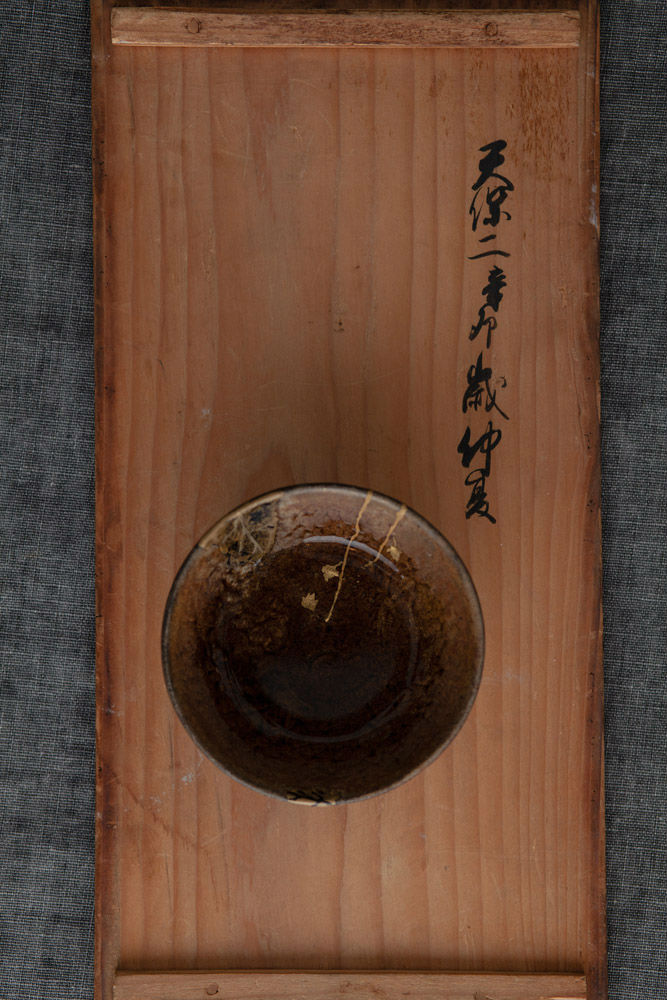 天保二辛卯歳仲夏